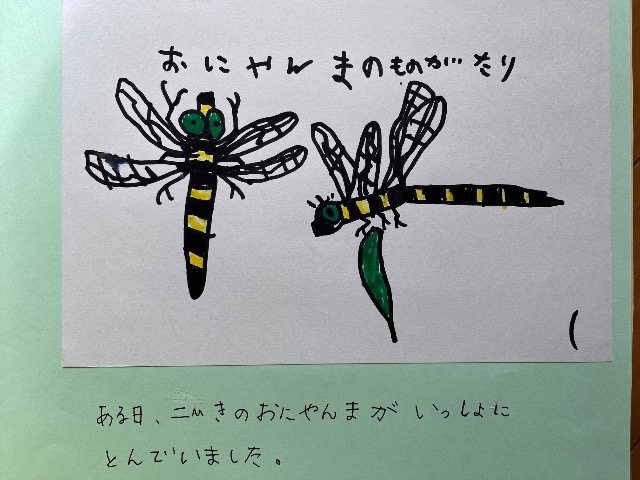 おにやんまのものがたり
ある日、二ひきのおにやんまが いっしょに
とんでいました。